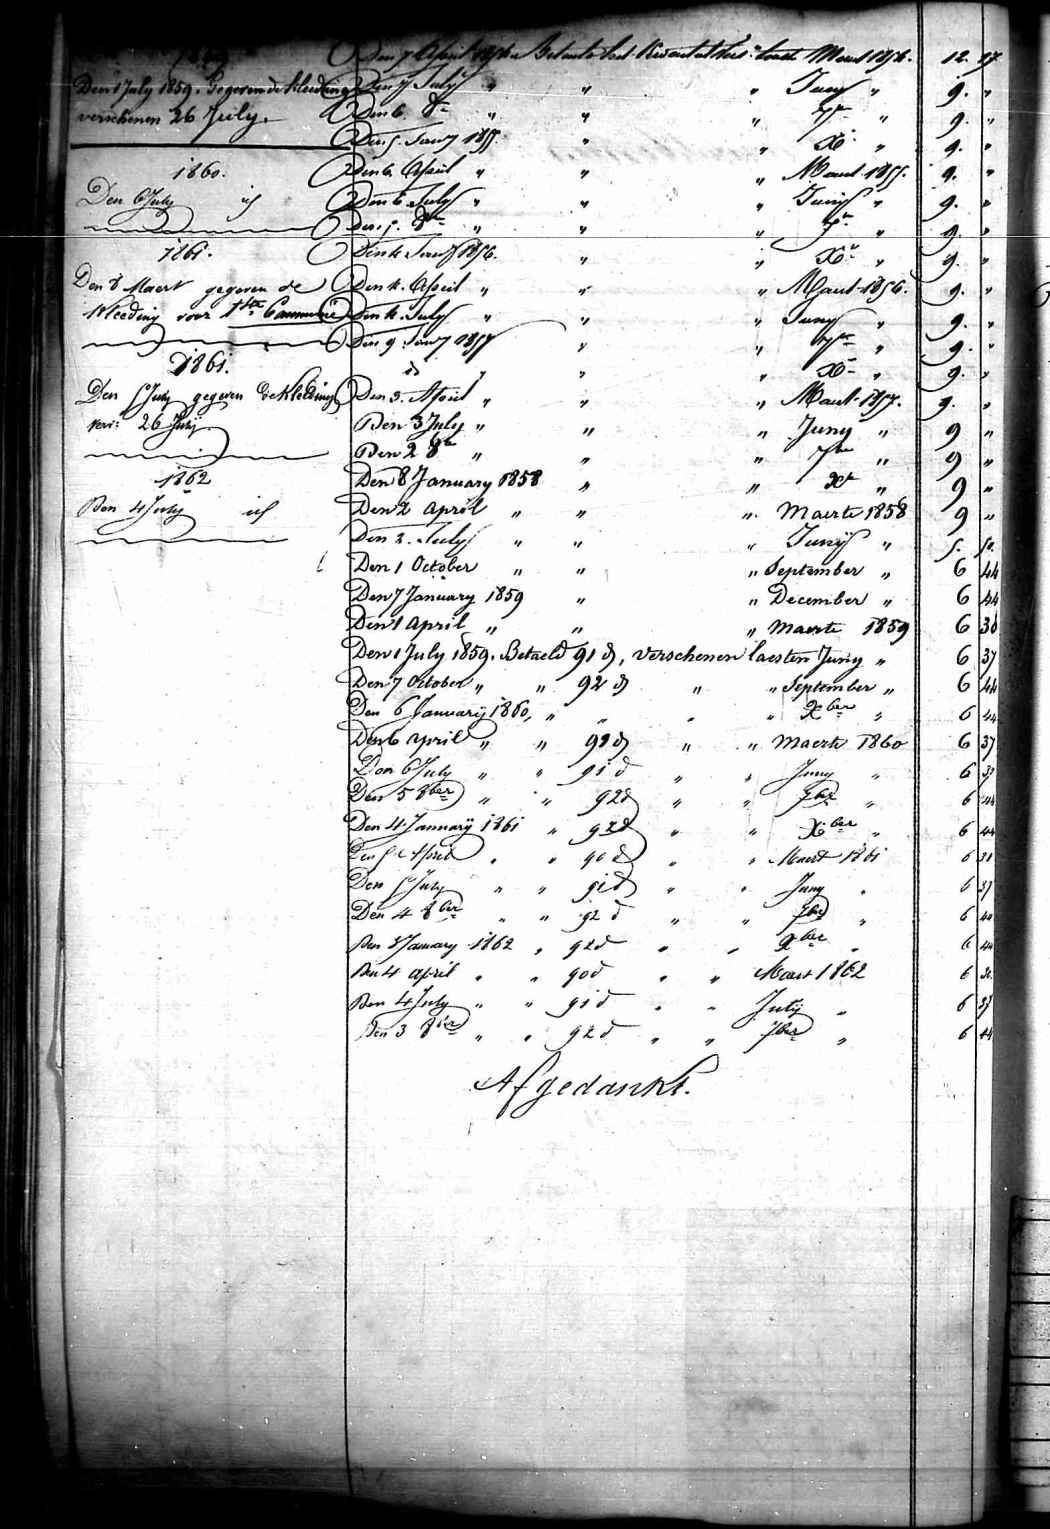 1859
Den 1 July 1859. Gegeven de kleeding
verschenen 26 July.
1860.
Den 6 July id
1861.
Den 8 Maert gegeven de
kleeding voor 1ste Communie
1861.
Den 5 July gegeven de kleeding
vers: 26 July
1862
Den 4 July id
Den 7 April Betaelt het Maert 12. 27
Den 7 July " " " Juny " 9. "
Den 6. 8re " " " 7re " 9. "
Den 5. Janry 1855 " " Xr " 9. "
Den 6. April " " " Maert 1855. 9. "
Den 6 July " " " Juny " 9. "
Den 5. 8re " " " 7re " 9. "
Den 4 Janry 1856. " " Xr " 9. "
Den 4. April " " " Maert 1856. 9. "
Den 4. July " " " Juny " 9. "
Den 9 Janry 1857 " " 7re " 9. "
id " " " Xr " 9. "
Den 3. April " " " Maert 1857. 9. "
Den 3 July " " " Juny " 9 "
Den 2 8re " " " 7re " 9 "
Den 8 January 1858 " " Xr " 9 "
Den 2 April " " " Maerte 1858 9 "
Den 2. July " " " Juny " 5. 50.
Den 1 October " " " September " 6 44
Den 7 January 1859 " " December " 6 44
Den 1 April " " " Maerte 1859 6 30
Den 1 July 1859. Betaeld 91 d, verschenen laesten Juny " 6 37
Den 7 October " " 92 d " " September " 6 44
Den 6 January 1860, " " " " Xber " 6 44
Den 6 April " " 91 d " " Maerte 1860 6 37
Den 6 July " " 91 d " " Juny " 6 37
Den 5 8ber " " 92 d " " 7ber " 6 44
Den 4 January 1861 " 92 d " " Xber " 6 44
Den 5 April " " 90 d " " Maert 1861 6 30
Den 5 July " " 91 d " " Juny " 6 37
Den 4 8ber " " 92 d " " 7ber " 6 44
Den 3 January 1862 " 92 d " " Xber " 6 44
Den 4 april " " 90 d " " Maert 1862 6 30
Den 4 July " " 91 d " " July " 6 37
Den 3 8ber " " 92 d " " 7ber " 6 44
Afgedankt.